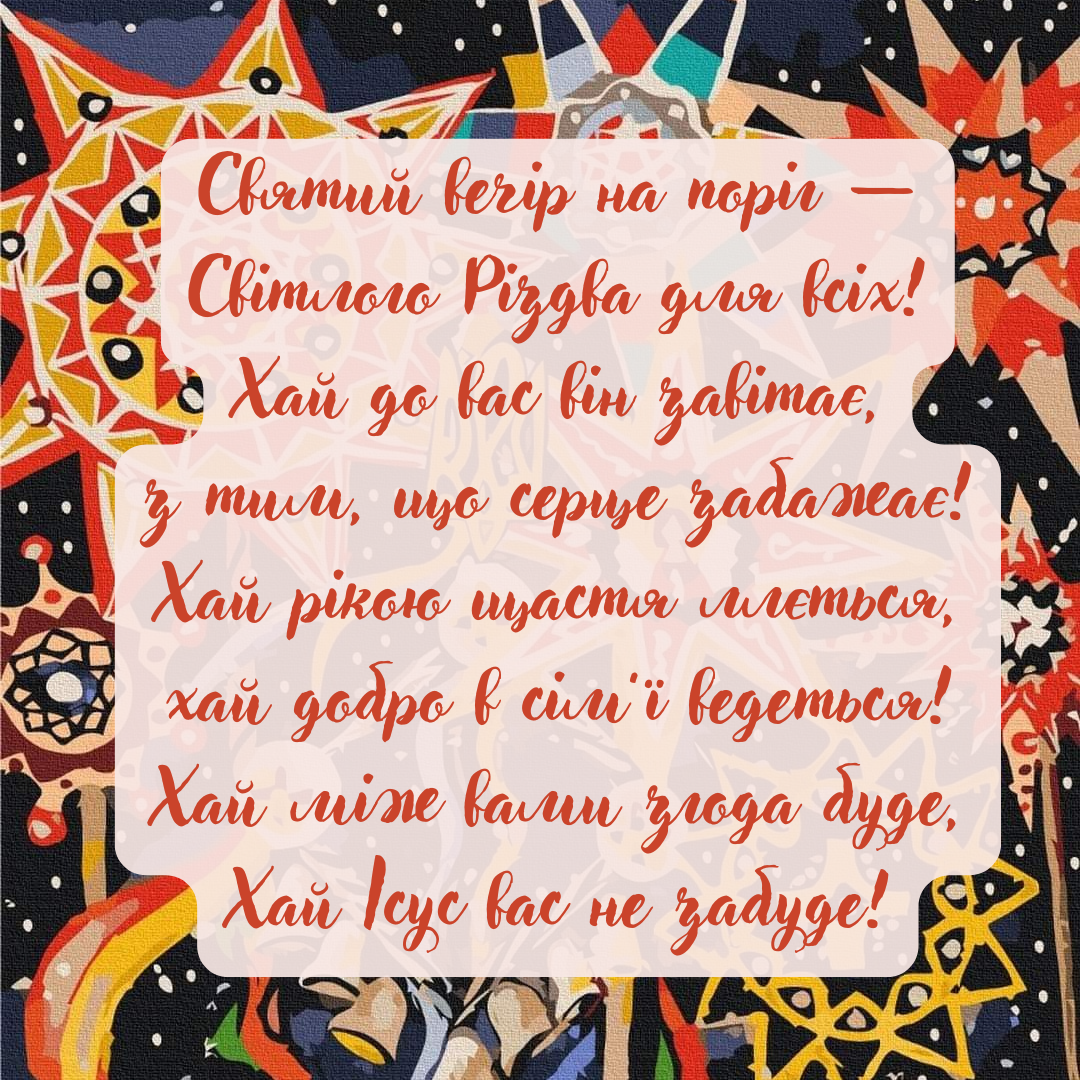 Святий вечір на поріг —
Світлого Різдва для всіх!
Хай до вас він завітає,
з тим, що серце забажає!
Хай рікою щастя ллється,
хай добро в сім'ї ведеться!
Хай між вами згода буде,
Хай Ісус вас не забуде!